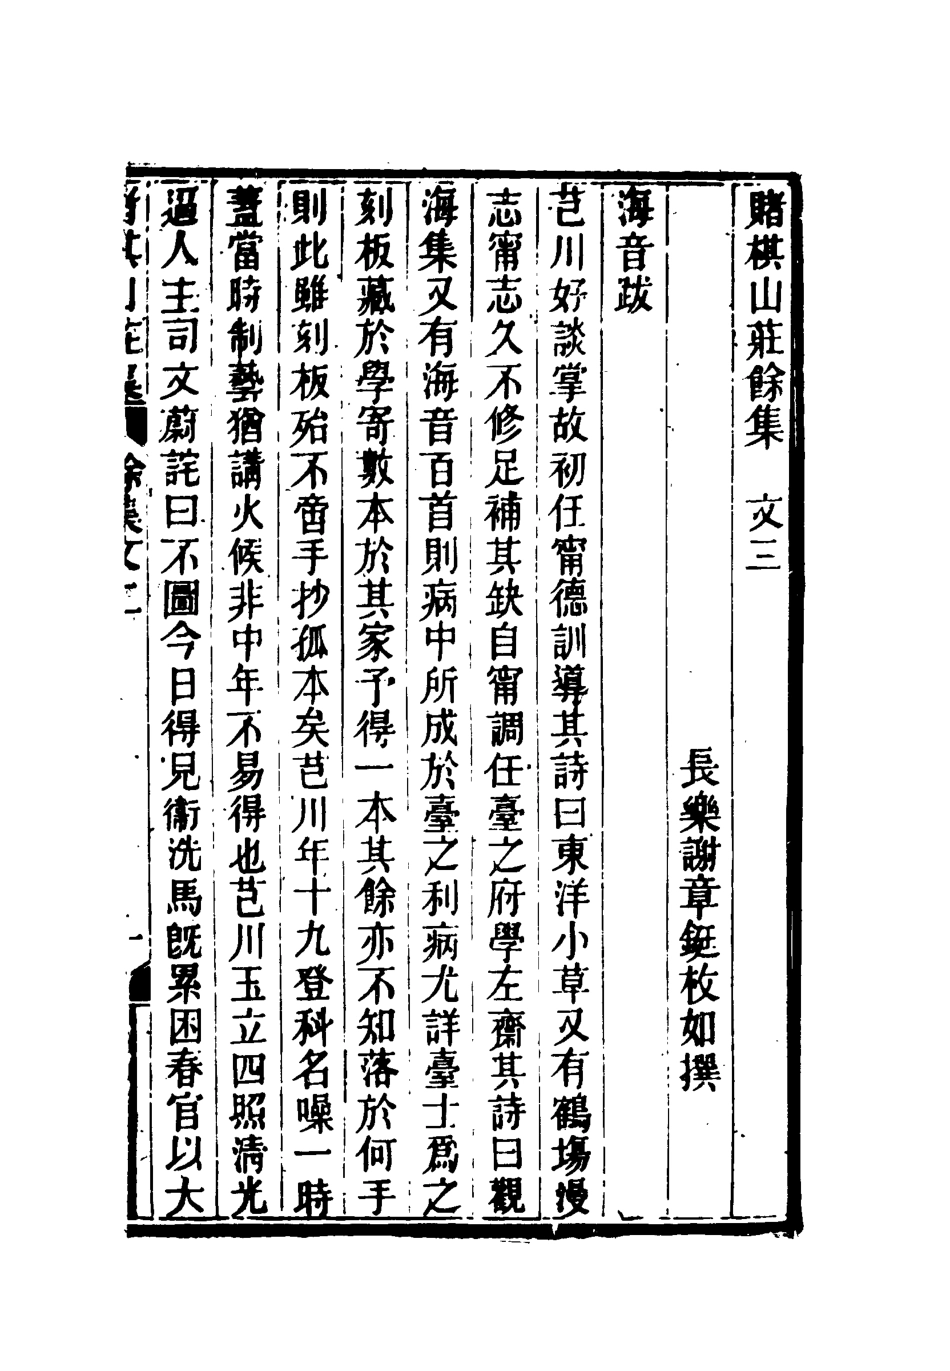 賭棋山莊餘集　文三
長樂謝章鋌枚如撰
海音跋
芑川好談掌故初任甯德訓導其詩曰東洋小草又有鶴塲漫
志甯志久不修足補其缺自甯調任臺之府學左齋其詩曰觀
海集又有海音百首則病中所成於臺之利病尤詳臺士爲之
刻板藏於學寄數本於其家予得一本其餘亦不知落於何手
則此雖刻板殆不啻手抄孤本矣芑川年十九登科名噪一時
葢當時制藝猶講火候非中年不易得也芑川玉立四照清光
逼人主司文蔚詫曰不圖今日得見衞洗馬旣累困春官以大